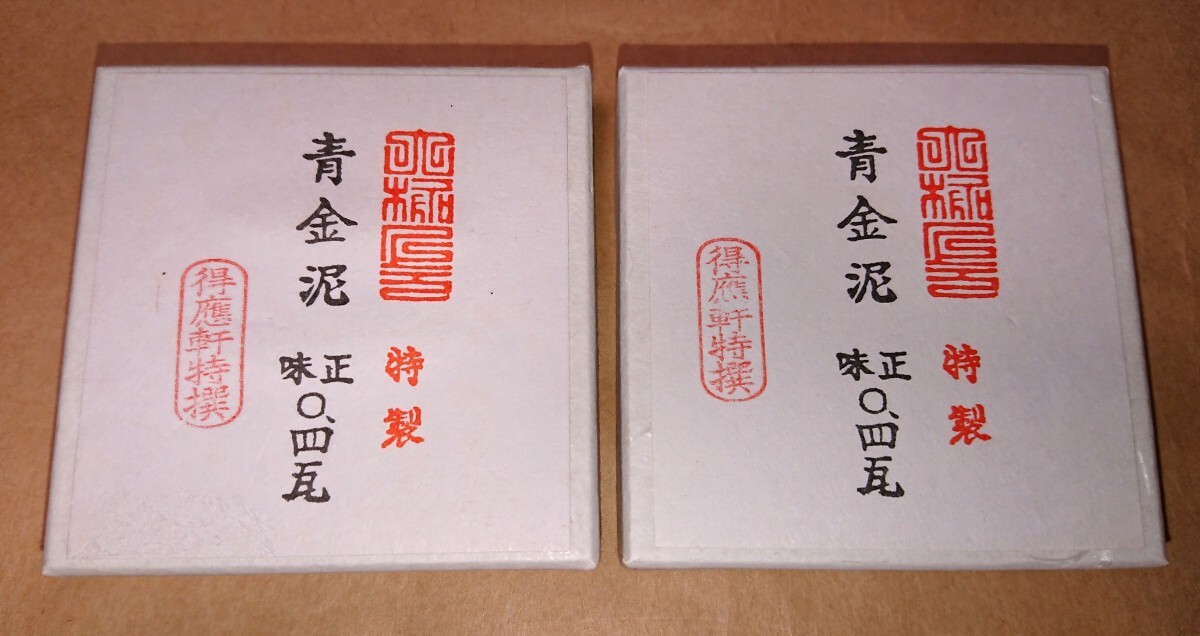 特製
青金泥 正味〇、四瓦
得應軒特撰
特製
青金泥 正味〇、四瓦
得應軒特撰